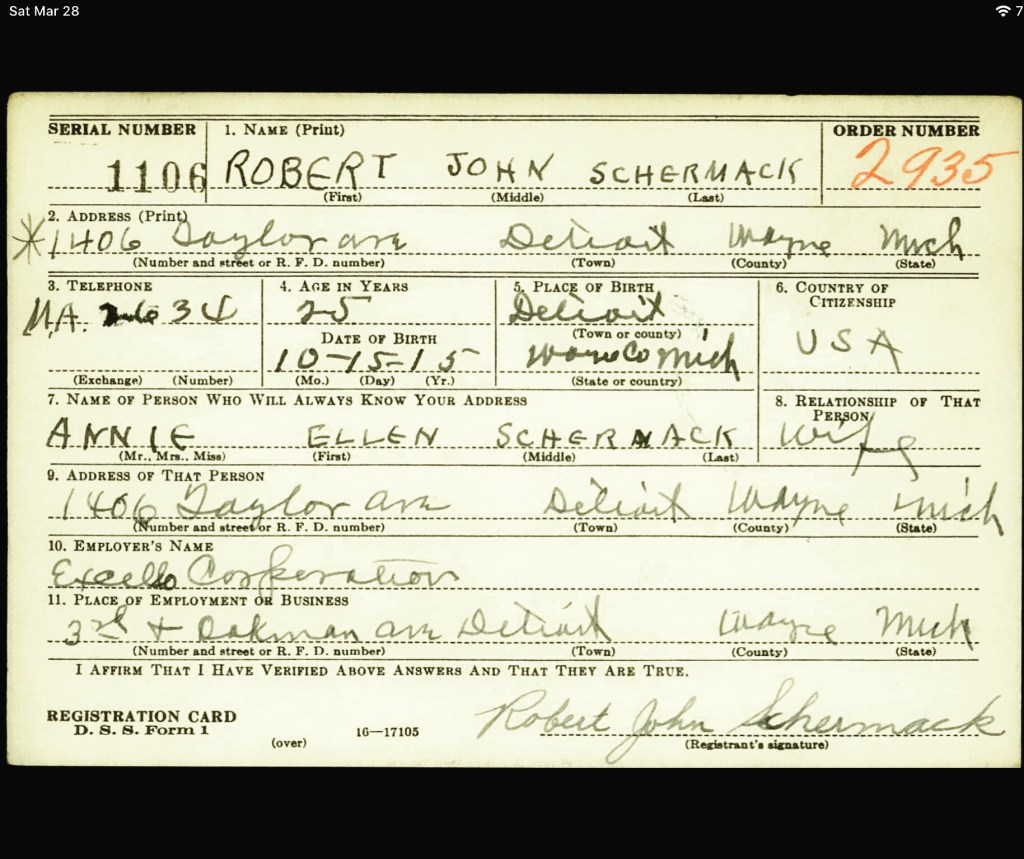 Sat Mar 28
7
SERIAL NUMBER 1. NAME (Print) ORDER NUMBER
1106 ROBERT JOHN SCHERMACK 2935
(First) (Middle) (Last)
2. ADDRESS (Print)
1406 Taylor ave Detroit Wayne Mich
(Number and street or R. F. D. number) (Town) (County) (State)
3. TELEPHONE 4. AGE IN YEARS 5. PLACE OF BIRTH 6. COUNTRY OF CITIZENSHIP
MA. 34 25 Detroit USA
DATE OF BIRTH (Town or county)
10-15-15 Wayne Co Mich
(Exchange) (Number) (Mo.) (Day) (Yr.) (State or country)
7. NAME OF PERSON WHO WILL ALWAYS KNOW YOUR ADDRESS 8. RELATIONSHIP OF THAT PERSON
ANNIE ELLEN SCHERMACK Wife
(Mr., Mrs., Miss) (First) (Middle) (Last)
9. ADDRESS OF THAT PERSON
1406 Taylor ave Detroit Wayne Mich
(Number and street or R. F. D. number) (Town) (County) (State)
10. EMPLOYER'S NAME
Excello Corporation
11. PLACE OF EMPLOYMENT OR BUSINESS
3rd + Oakman ave Detroit Wayne Mich
(Number and street or R. F. D. number) (Town) (County) (State)
I AFFIRM THAT I HAVE VERIFIED ABOVE ANSWERS AND THAT THEY ARE TRUE.
REGISTRATION CARD Robert John Schermack
D. S. S. Form 1 16—17105
(over) (Registrant's signature)